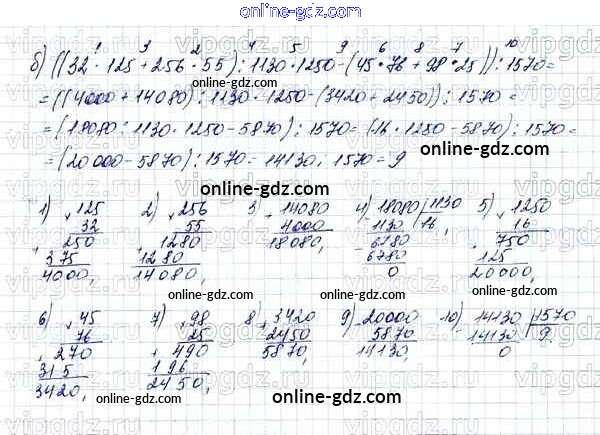 online-gdz.com
1 3 2 4 5 9 6 8 7 10
б) ((32 · 125 + 256 · 55) : 1130 · 1250 - (45 · 76 + 98 · 25)) : 1570 =
= ((4000 + 14080) : 1130 · 1250 - (3420 + 2450)) : 1570 =
= (18080 : 1130 · 1250 - 5870) : 1570 = (16 · 1250 - 5870) : 1570 =
= (20000 - 5870) : 1570 = 14130 : 1570 = 9
online-gdz.com
1) 125 2) 256 3 14080 4) 18080 1130 5) 1250
32 55 4000 1130 16 16
250 1280 18080 6780 750
375 1280 6780 125
4000 14080 0 20000
online-gdz.com online-gdz.com
6) 45 7) 98 8) 3420 9) 20000 10) 14130 1570
76 25 2450 5870 14130 9
270 490 5870 14130 0
315 196
3420 2450
online-gdz.com online-gdz.com
online-gdz.com